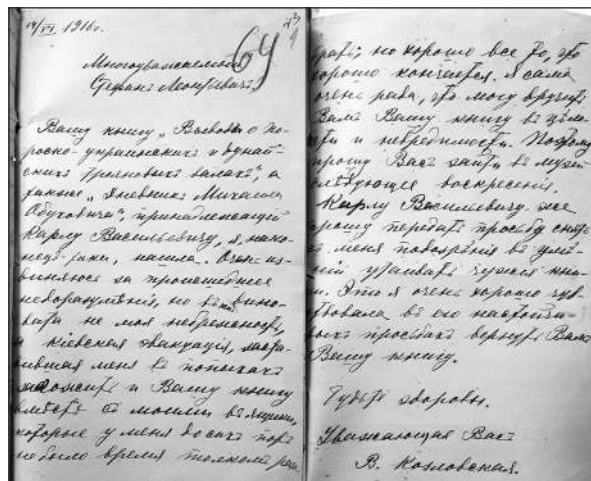 14/VI. 1916 г.
64
Многоуважаемый
Стефанъ Леонтьевичъ.
Вашу книгу „Выводы о По-
росско-украинскихъ и дунай-
скихъ Трояновыхъ валахъ", а
также „Дневникъ Михаила
Обуховича", принадлежащій
Карлу Васильевичу, я, нако-
нецъ-таки, нашла. Очень из-
виняюсь за происшедшее
недоразумѣніе, но въ виновата не моя небрежность,
а кіевская эвакуація, заста-
вившая меня въ попыхахъ
заложить и Вашу книгу
вмѣстѣ съ моими въ ящики,
которые у меня до сихъ поръ
не было время толкомъ разо-
брать; но хорошо все то, что
хорошо кончается. Я сама
очень рада, что могу вручить
Вамъ Вашу книгу въ цѣло-
сти и невредимости. Поэтому
прошу Васъ зайти въ музей
слѣдующее воскресеніе.
Карлу Васильевичу же
прошу передать просьбу снять
съ меня подозрѣнія въ умѣ-
ніи утаивать чужія кни-
ги. Это я очень хорошо чув-
ствовала въ его настойчи-
выхъ просьбахъ вернуть Вамъ
Вашу книгу.
Будьте здоровы.
Уважающая Васъ
В. Козловская.